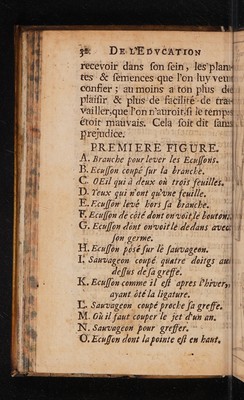 30. DE L'EDVCATION
recevoir dans son sein, les plan-
tes & semences que l'on luy veut
confier ; au moins a ton plus de
plaisir & plus de facilité de tra-
vailler, que l'on n'auroit si le temps
étoit mauvais. Cela soit dit sans
prejudice.
PREMIERE FIGURE.
A. Branche pour lever les Ecussons.
B. Ecusson coupé sur la branche.
C. OEil qui à deux où trois feuilles.
D. Yeux qui n'ont qu'vne feuille.
E. Ecusson levé hors sa branche.
F. Ecusson de côté dont on voit le bouton.
G. Ecusson dont on voit le dedans avec
son germe.
H. Ecusson posé sur le sauvageon.
I. Sauvageon coupé quatre doigts au
dessus de sa greffe.
K. Ecusson comme il est apres l'hiver,
ayant ôté la ligature.
L. Sauvageon coupé proche sa greffe.
M. Où il faut couper le jet d'un an.
N. Sauvageon pour greffer.
O. Ecusson dont la pointe est en haut.